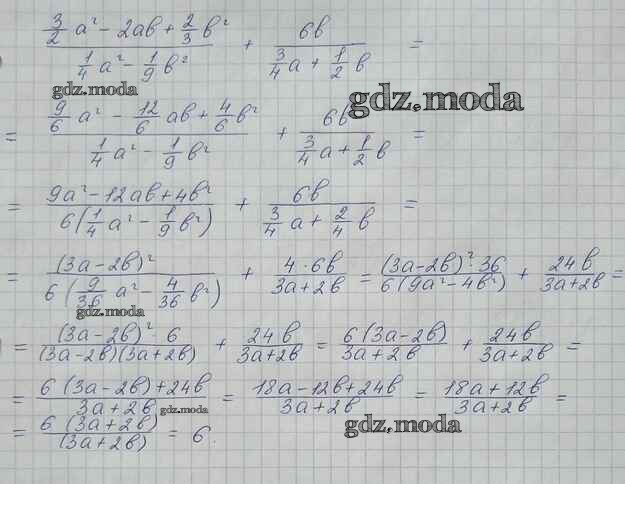 3/2 a² - 2ab + 2/3 b² / 1/4 a² - 1/9 b² + 6b / 3/4 a + 1/2 b =
gdz.moda
gdz.moda
= 9/6 a² - 12/6 ab + 4/6 b² / 1/4 a² - 1/9 b² + 6b / 3/4 a + 1/2 b =
= 9a² - 12ab + 4b² / 6(1/4 a² - 1/9 b²) + 6b / 3/4 a + 2/4 b =
= (3a - 2b)² / 6(9/36 a² - 4/36 b²) + 4·6b / 3a + 2b = (3a - 2b)²·36 / 6(9a² - 4b²) + 24b / 3a + 2b =
gdz.moda
= (3a - 2b)²·6 / (3a - 2b)(3a + 2b) + 24b / 3a + 2b = 6(3a - 2b) / 3a + 2b + 24b / 3a + 2b =
= 6(3a - 2b) + 24b / 3a + 2b = 18a - 12b + 24b / 3a + 2b = 18a + 12b / 3a + 2b =
gdz.moda
gdz.moda
= 6(3a + 2b) / (3a + 2b) = 6.